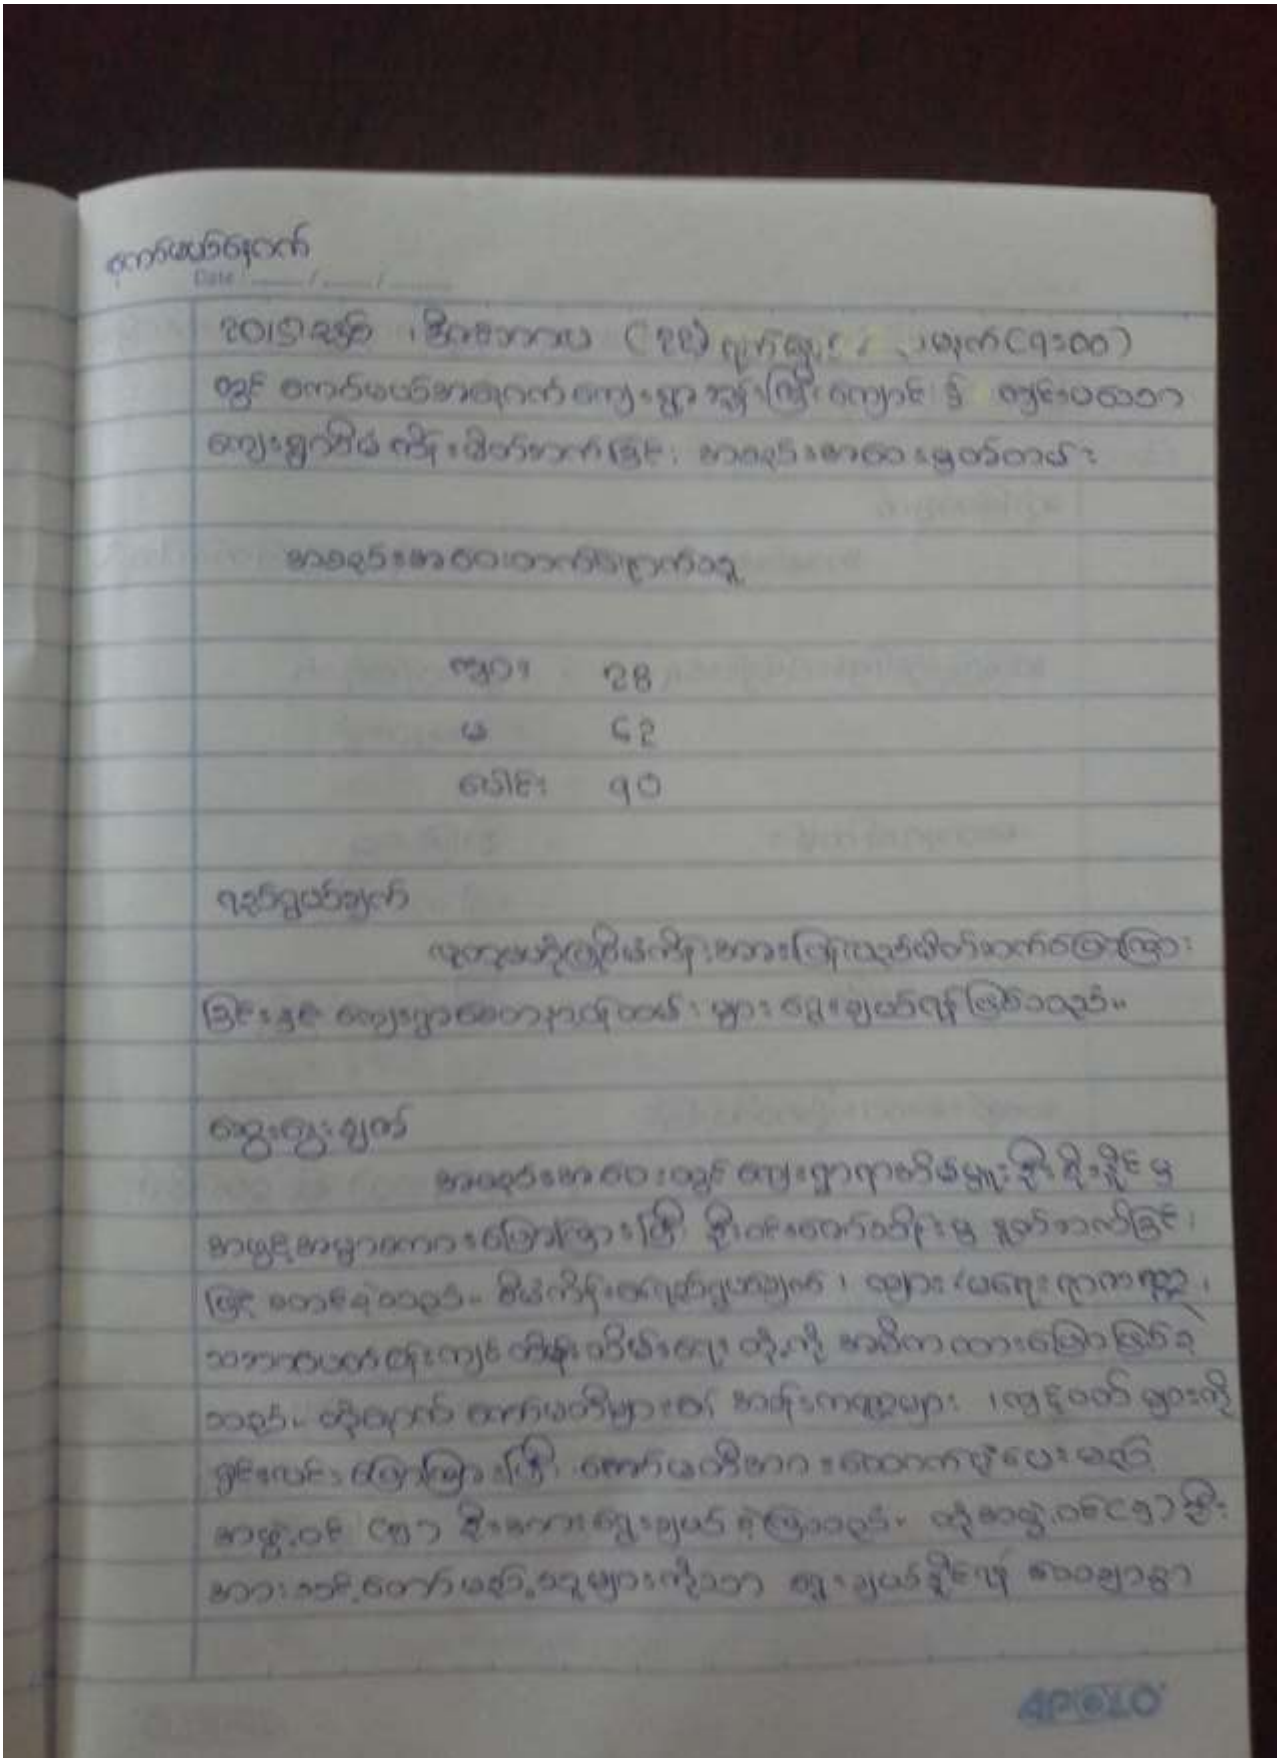 ကော်မယ်နောက်
Date / /
၂၀၁၅ခုနှစ် ၊ ဒီဇင်ဘာလ (၂၂) ရက် မနက် (၇:၀၀)
တွင် ကော်မယ်နောက်ကျေးရွာ ဘုန်းကြီးကျောင်း ၌ ကျင်းပသော
ကျေးရွာစီမံကိန်းမိတ်ဆက်ခြင်း အစည်းအဝေးမှတ်တမ်း
အစည်းအဝေးတက်ရောက်သူ
ကျား ၂၈
မ ၆၂
ပေါင်း ၉၀
ရည်ရွယ်ချက်
လူထုဗဟိုပြုစီမံကိန်းအားပြန်လည်မိတ်ဆက်ပြောကြား
ခြင်းနှင့် ကျေးရွာစေတနာ့ဝန်ထမ်း များ ရွေးချယ်ရန်ဖြစ်သည်။
ဆွေးနွေးချက်
အစည်းအဝေးတွင် ကျေးရွာရာအိမ်မှူး ဦး မှ
အဖွင့်အမှာစကားပြောကြားပြီး ဦး မှ နှုတ်ဆက်ခြင်း
ဖြင့် စတင်ခဲ့သည်။ စီမံကိန်းရည်ရွယ်ချက် ၊ ကျား/မရေးရာကဏ္ဍ ၊
သဘာဝပတ်ဝန်းကျင် ထိန်းသိမ်းရေး တို့ကို အဓိကထားပြောဖြစ်ခဲ့
သည်။ ထို့နောက် ကော်မတီများ၏ အခန်းကဏ္ဍများ ၊ ကျင့်ဝတ် များကို
ရှင်းလင်း ပြောကြားပြီး ကော်မတီအား ထောက်ပံ့ပေးမည့်
အဖွဲ့ဝင် (၅) ဦးအား ရွေးချယ် ခဲ့ကြသည်။ ထိုအဖွဲ့ဝင် (၅) ဦး
အား သင့်တော်မည့်သူများကိုသာ ရွေးချယ်နိုင်ရန် သေချာစွာ
APOLO